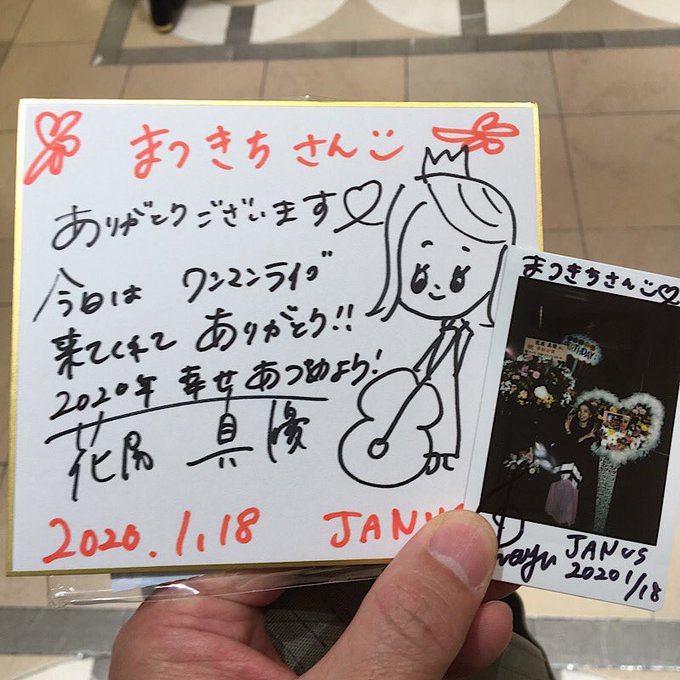 まつきちさん
ありがとうございます♡
今日は ワンマンライブ
来てくれて ありがとう!!
2020年 幸せあつめよう!
花房 真優
2020.1.18 JANUS
まつきちさん♡
JANUS
2020 1/18